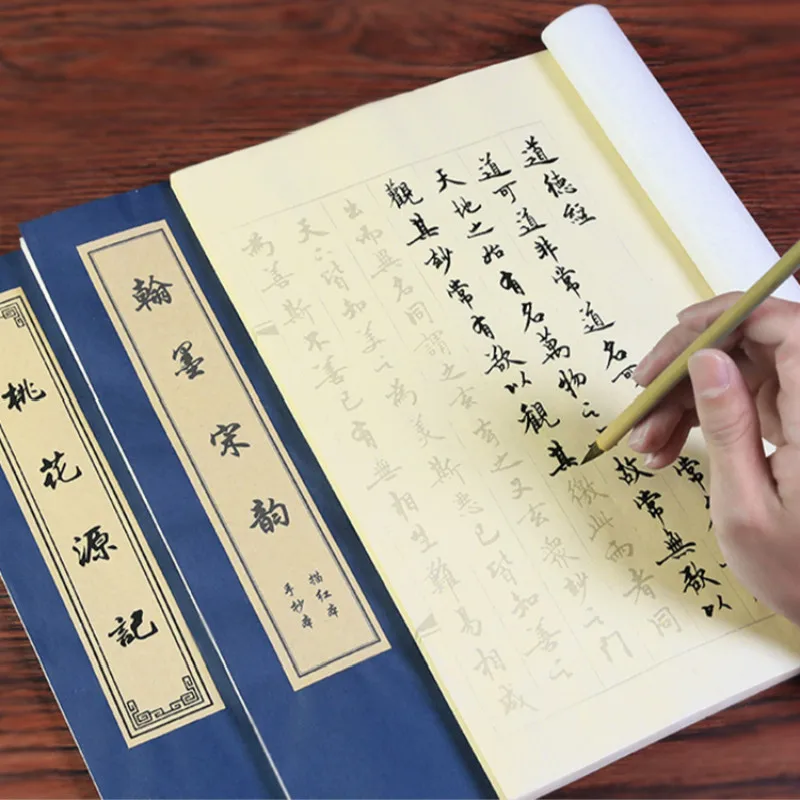 道德經
道可道非常道名可常
天地之始有名萬物之故常無欲以
觀其妙常有欲以觀其徼此兩者同
出而異名同謂之玄玄之又玄衆妙之門
天下皆知美之為美斯惡已皆知善之
為善斯不善已有無相生難易相成
翰墨宋韻
描红本
手抄本
桃花源記